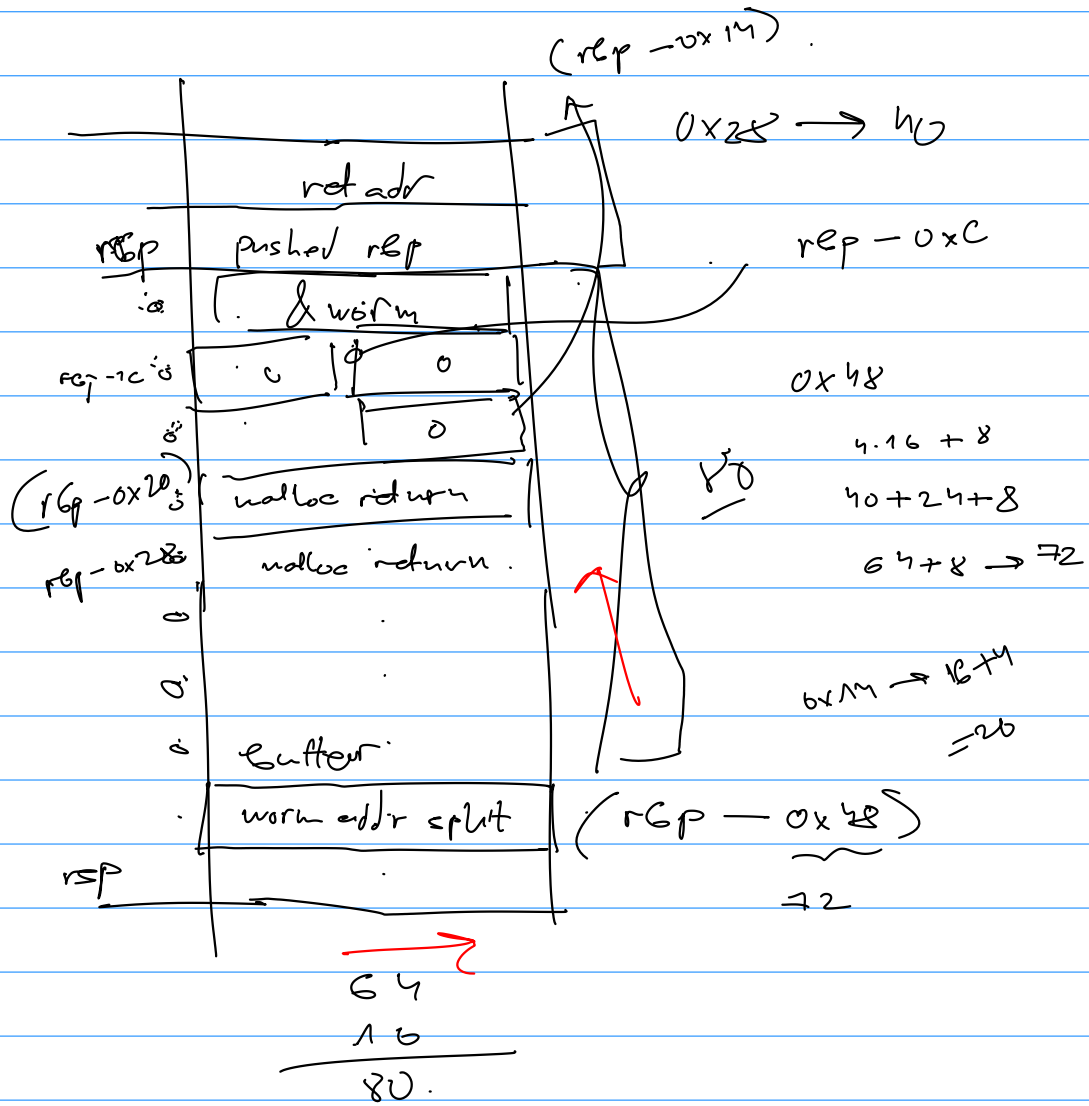 (rbp - 0x14) .
0x28 → 40
ret adr
rbp pushed rbp
rbp - 0xC
& worm
0
0x48
0
4.16 + 8
(rbp - 0x20) malloc return
40 + 24 + 8
rbp - 0x28 malloc return .
64 + 8 → 72
0x14 → 16+4
= 20
buffer
worm addr split (rbp - 0x48)
rsp
72
64
16
80.